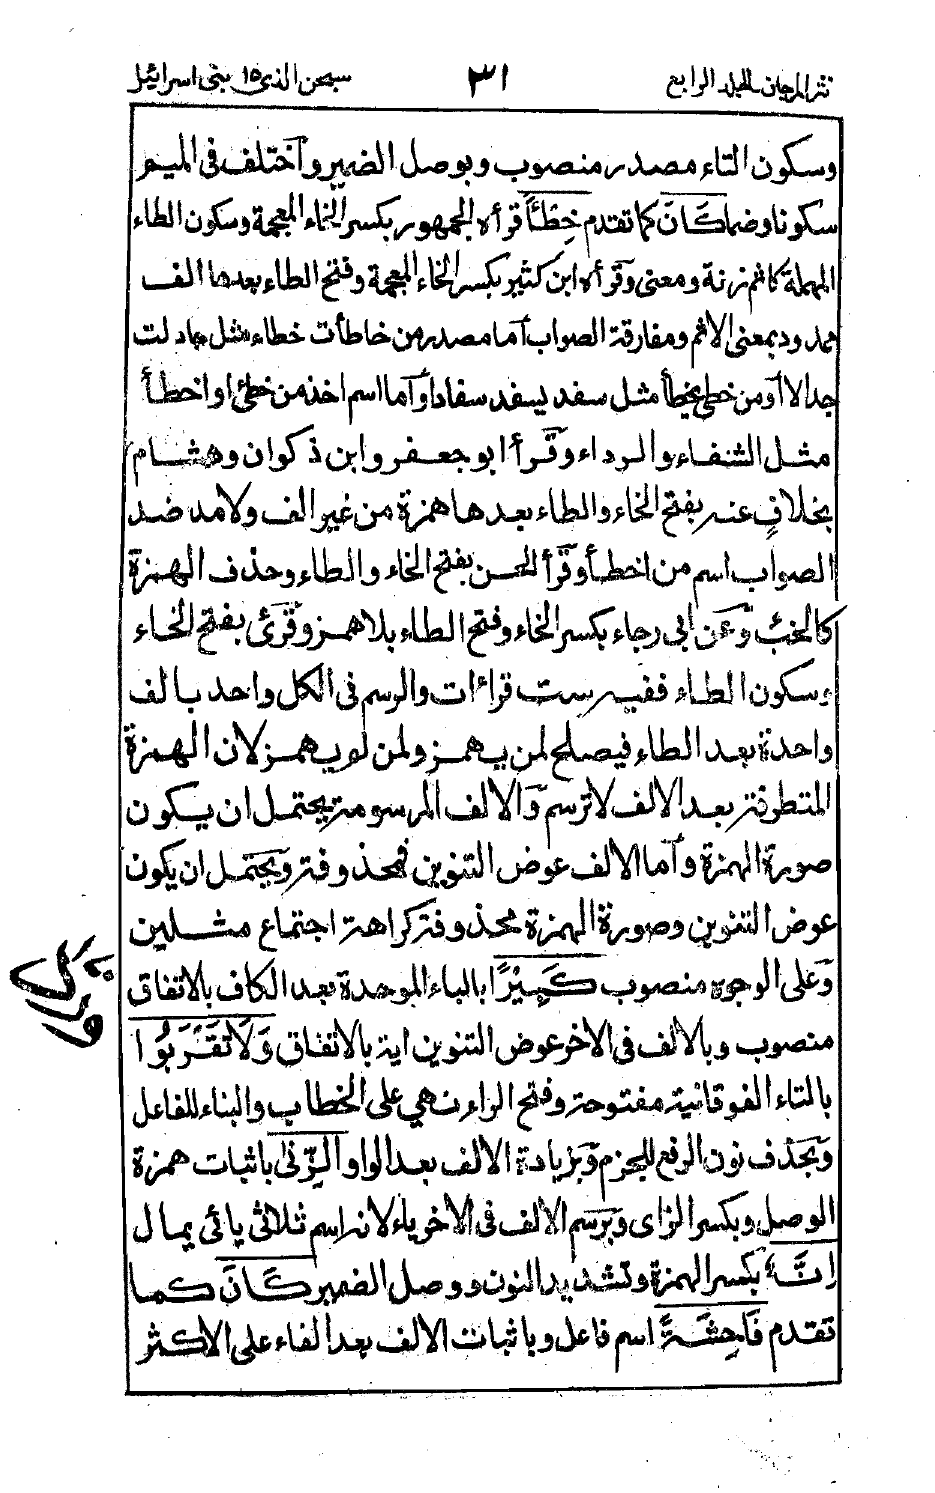 نثر المرجان المجلد الرابع ٣١ سبحن الذى ١٥ بنى اسرائيل
وسكون التاء مصدر منصوب وبوصل الضمير واختلف فى الميم
سكونا وضما كَانَ كما تقدم خِطْئًا قرأه الجمهور بكسر الخاء المعجمة وسكون الطاء
المهملة كاثم زنة ومعنى وقرأه ابن كثير بكسر الخاء المعجمة وفتح الطاء بعدها الف
ممدود بمعنى الاثم ومفارقة الصواب أما مصدر من خاطأت خطاء مثل جادلت
جدالا أو من خطئ يخطأ مثل سفد يسفد سفادا وأما اسم اخذ من خطئ او اخطأ
مثل الشفاء والرداء وقرأ ابو جعفر وابن ذكوان وهشام
بخلافٍ عنه بفتح الخاء والطاء بعدها همزة من غير الف ولا مد ضد
الصواب اسم من اخطأ وقرأ الحسن بفتح الخاء والطاء وحذف الهمزة
كالخبء وعن ابى رجاء بكسر الخاء وفتح الطاء بلا همز وقرئ بفتح الخاء
وسكون الطاء ففيه ست قراءات والرسم فى الكل واحد بالف
واحدة بعد الطاء فيصلح لمن يهمز ولمن لم يهمز لان الهمزة
المتطرفة بعد الالف لا ترسم والالف المرسومة يحتمل ان يكون
صورة الهمزة وأما الالف عوض التنوين فمحذوفة ويحتمل ان يكون
عوض التنوين وصورة الهمزة محذوفة كراهة اجتماع مثلين
وعلى الوجوه منصوب كَبِيْرًا بالباء الموحدة بعد الكاف بالاتفاق
منصوب وبالالف فى الاخر عوض التنوين اية بالاتفاق وَلَا تَقْرَبُوا
بالتاء الفوقانية مفتوحة وفتح الراء نهي على الخطاب والبناء للفاعل
وبحذف نون الرفع للجزم وبزيادة الالف بعد الواو الزِّنٰى باثبات همزة
الوصل وبكسر الزاى وبرسم الالف فى الاخر ياء لانه اسم ثلاثى يائى يمال
اِنَّهٗ بكسر الهمزة وتشديد النون ووصل الضمير كَانَ كما
تقدم فَاحِشَةً اسم فاعل وباثبات الالف بعد الفاء على الاكثر